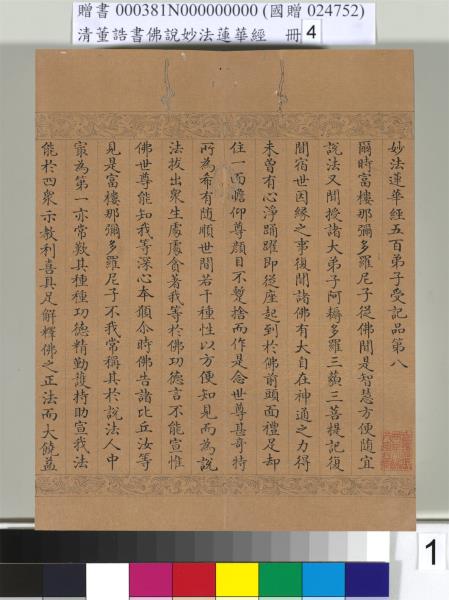 贈書 000381N000000000 (國贈 024752)
清董誥書佛說妙法蓮華經 冊 4
妙法蓮華經五百弟子受記品第八
爾時富樓那彌多羅尼子從佛聞是智慧方便隨宜
說法又聞授諸大弟子阿耨多羅三藐三菩提記復
聞宿世因緣之事復聞諸佛有大自在神通之力得
未曾有心淨踊躍即從座起到於佛前頭面禮足却
住一面瞻仰尊顏目不蹔捨而作是念世尊甚奇特
所為希有隨順世間若干種性以方便知見而為說
法拔出眾生處處貪著我等於佛功德言不能宣惟
佛世尊能知我等深心本願尒時佛告諸比丘汝等
見是富樓那彌多羅尼子不我常稱其於說法人中
冣為第一亦常歎其種種功德精勤護持助宣我法
能於四眾示教利喜具足解釋佛之正法而大饒益
1